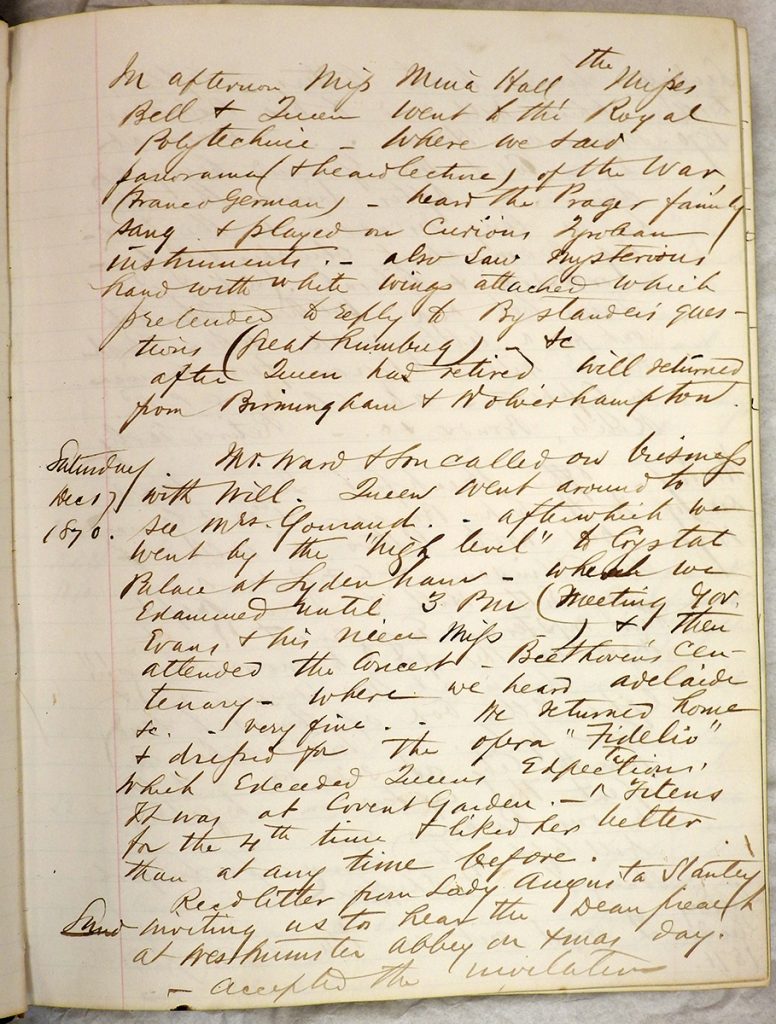 In afternoon Miss Mina Hall the Misses
Bell & Queen went to the Royal
Polytechnic – where we saw
panorama (& heard lecture) of the War,
(Franco German) – heard the Prager family
sang & played on Curious Tyrolean
instruments. – also saw mysterious
hand with white wings attached which
pretended to reply to Bystanders ques-
tions (Great humbug) – &c
after Queen had retired Will returned
from Birmingham & Wolverhampton.
Saturday
Dec 17
1870.
Mr. Ward & Son called on business
with Will. Queen went around to
see Mrs. Gouraud. . afterwhich we
went by the "high level" to Crystal
Palace at Sydenham – which we
Examined until 3 PM (Meeting Gov.
Evans & his niece Miss ) & then
attended the Concert – Beethoven's Cen-
tenary – where we heard adelaide
&c. – very fine . . We returned home
& dressed for the opera "Fidelio"
which Exceeded Queens Expectations.
It was at Covent Garden. – Titens
for the 4th time & liked her better
than at any time before.
Recd letter from Lady Augusta Stanley
Sund
inviting us to hear the Dean preach
at Westminster abbey on xmas day.
– accepted the invitation